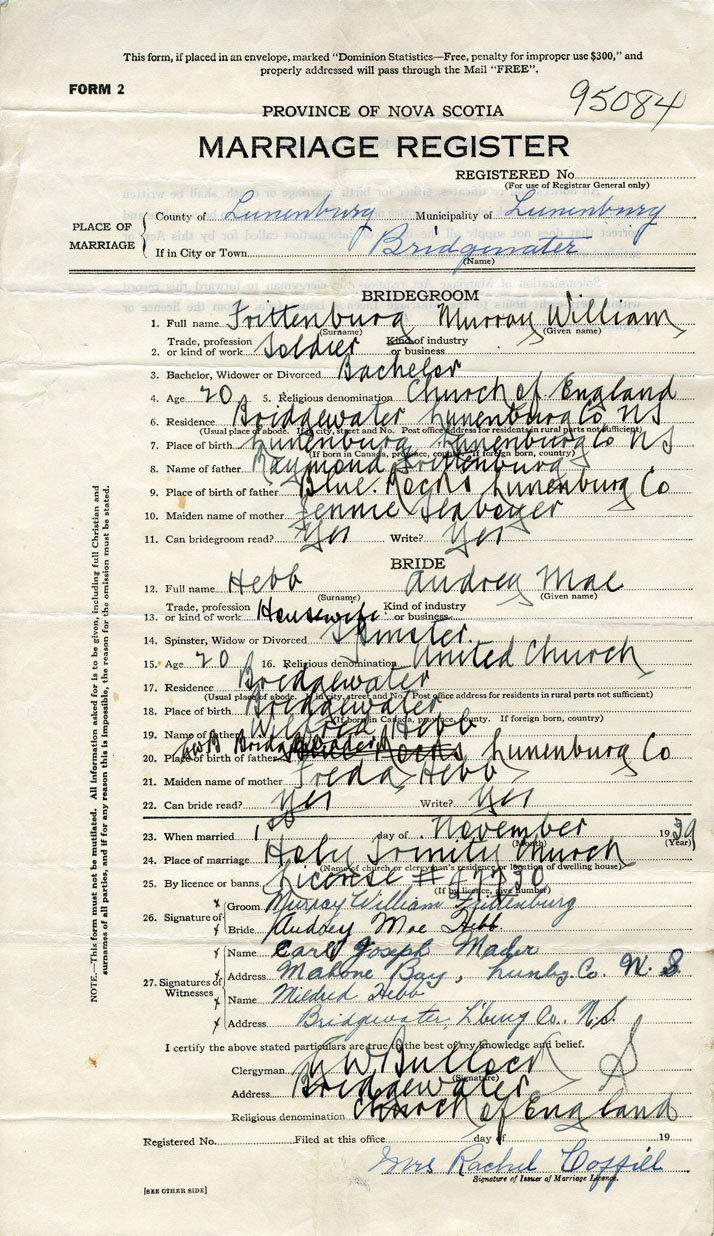 This form, if placed in an envelope, marked "Dominion Statistics—Free, penalty for improper use $300," and
properly addressed will pass through the Mail "FREE".
FORM 2
95084
PROVINCE OF NOVA SCOTIA
MARRIAGE REGISTER
REGISTERED No.
(For use of Registrar General only)
PLACE OF MARRIAGE
County of Lunenburg Municipality of Lunenburg
If in City or Town Bridgewater
(Name)
BRIDEGROOM
1. Full name Frittenburg Murray William
(Surname) (Given name)
Trade, profession Kind of industry
2. or kind of work Soldier or business
3. Bachelor, Widower or Divorced Bachelor
4. Age 20 5. Religious denomination Church of England
6. Residence Bridgewater Lunenburg Co NS
(Usual place of abode. If in city, street and No. Post office address for residents in rural parts not sufficient)
7. Place of birth Lunenburg Lunenburg Co NS
(If born in Canada, province, county. If foreign born, country)
8. Name of father Raymond Frittenburg
9. Place of birth of father Blue Rocks Lunenburg Co
10. Maiden name of mother Jennie Seaboyer
11. Can bridegroom read? Yes Write? Yes
BRIDE
12. Full name Hebb Audrey Mae
(Surname) (Given name)
Trade, profession Kind of industry
13. or kind of work Housewife or business
14. Spinster, Widow or Divorced Spinster
15. Age 20 16. Religious denomination United Church
17. Residence Bridgewater
(Usual place of abode. If in city, street and No. Post office address for residents in rural parts not sufficient)
18. Place of birth Bridgewater
(If born in Canada, province, county. If foreign born, country)
19. Name of father Wilfred Hebb
20. Place of birth of father Rocks Lunenburg Co
21. Maiden name of mother Freda Hebb
22. Can bride read? Yes Write? Yes
23. When married 1st day of November 1939
(Month) (Year)
24. Place of marriage Holy Trinity Church
(Name of church or clergyman's residence or location of dwelling house)
25. By licence or banns License #
(If by licence, give number)
26. Signature of
Groom Murray William Frittenburg
Bride Audrey Mae Hebb
27. Signatures of Witnesses
Name Carl Joseph Mader
Address Mahone Bay, Lunbg. Co. N. S.
Name Mildred Hebb
Address Bridgewater, L'burg Co., N.S.
I certify the above stated particulars are true to the best of my knowledge and belief.
Clergyman W Bullock
(Signature)
Address Bridgewater
Religious denomination Church of England
Registered No. Filed at this office day of 19
Mrs Rachel Coffill
Signature of Issuer of Marriage Licence.
[SEE OTHER SIDE]
NOTE.—This form must not be mutilated. All information asked for is to be given, including full Christian and
surnames of all parties, and if for any reason this is impossible, the reason for the omission must be stated.